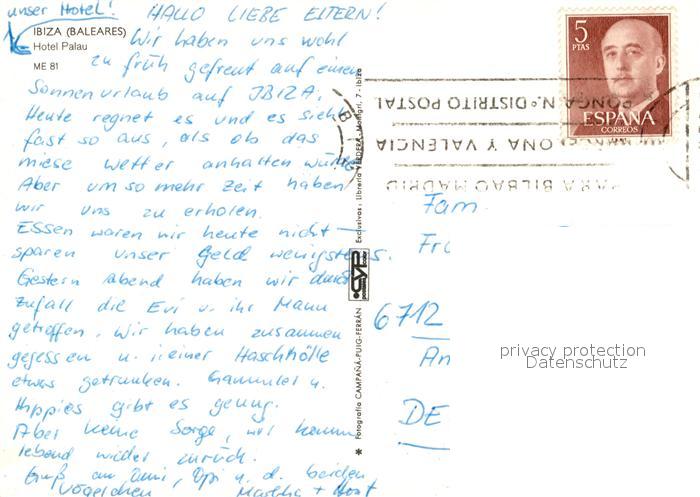 unser Hotel!
HALLO LIEBE ELTERN!
IBIZA (BALEARES)
Hotel Palau
ME 81
Wir haben uns wohl
zu früh gefreut auf einen
Sonnenurlaub auf IBIZA.
Heute regnet es und es sieht
fast so aus, als ob das
miese Wetter anhalten würde
Aber um so mehr Zeit haben
wir uns zu erholen.
Essen waren wir heute nicht -
sparen unser Geld wenigstens.
Gestern Abend haben wir durch
Zufall die Evi u. ihr Mann
getroffen. Wir haben zusammen
gegessen u. i. einer Haschhölle
etwas getrunken. Gammler u.
Hippies gibt es genug.
Aber keine Sorge, wir kommen
lebend wieder zurück.
Gruß an Omi, Opi u. d. beiden
Vögelchen Martha + Horst
Exclusivas: Librería VERDERA, Montgrí, 7 - Ibiza
CYP
* Fotografía CAMPAÑÁ-PUIG-FERRÁN
5
PTAS
ESPAÑA
CORREOS
PONGA N.º DISTRITO POSTAL
BARCELONA Y VALENCIA
PARA BILBAO MADRID
Fam
6712
An
DE
privacy protection
Datenschutz